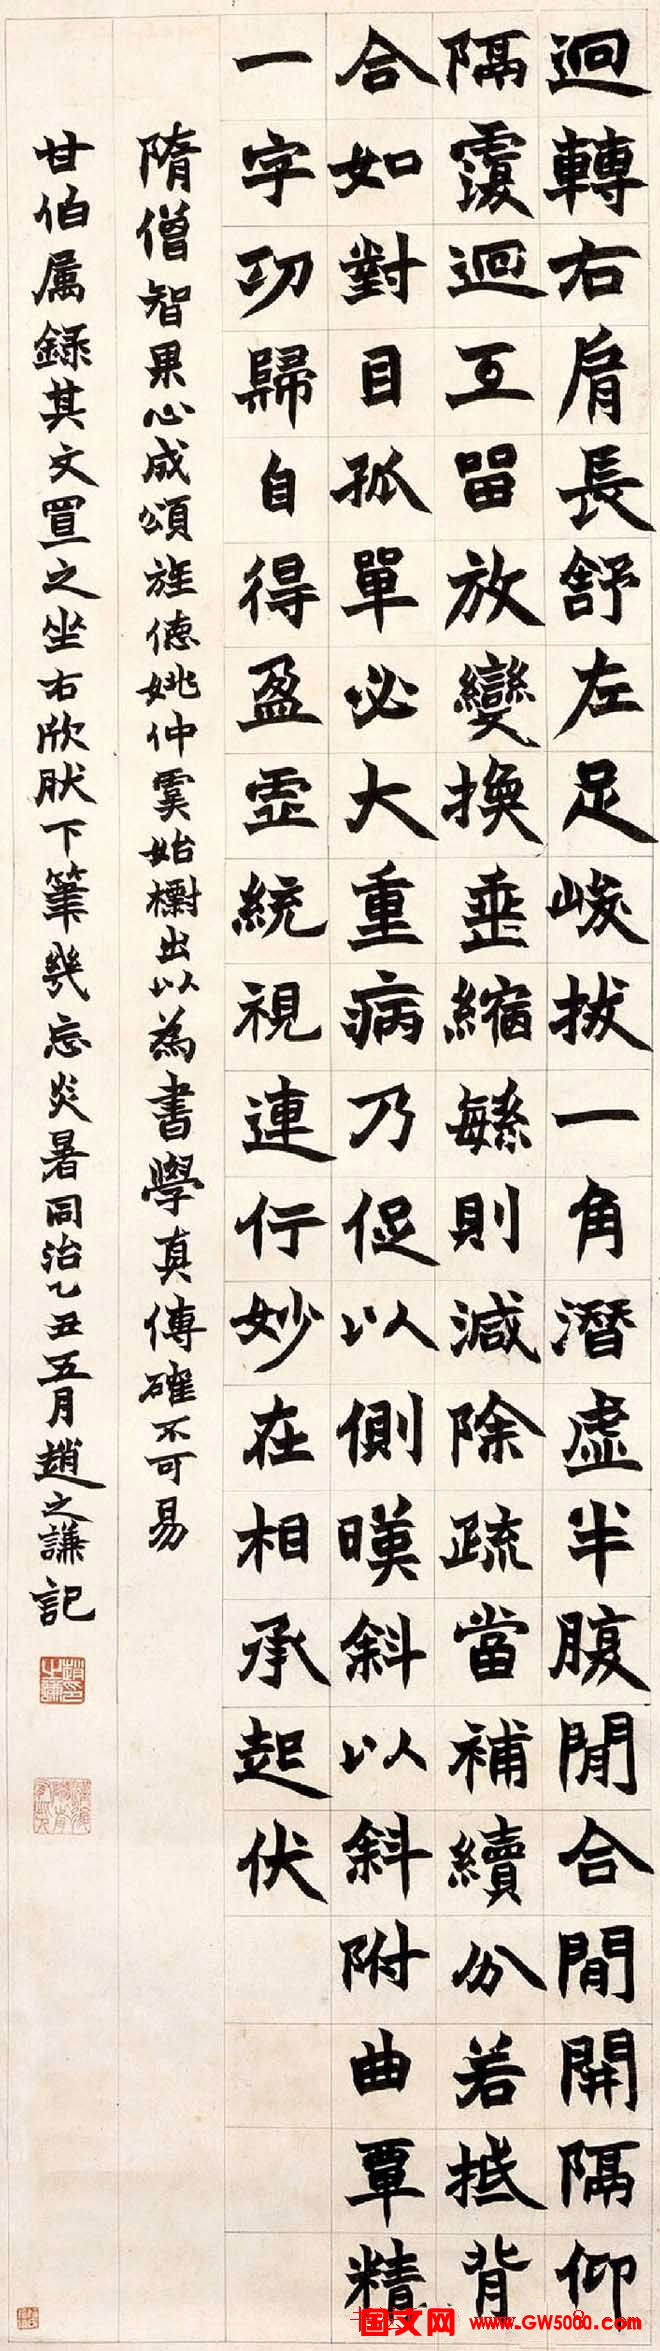 迴轉右肩長舒左足峻拔一角潛虛半腹閒合閒開隔仰
隔覆迴互留放變換垂縮繁則減除疏當補續分若抵背
合如對目孤單必大重病乃促以側暎斜以斜附曲覃精
一字功歸自得盈虛統視連行妙在相承起伏
隋僧智果心成頌旌德姚仲虞始出以為書學真傳確不可易
甘伯屬錄其文置之坐右欣肰下筆幾忘炎暑同治乙丑五月趙之謙記
国文网 www.GW5000.com